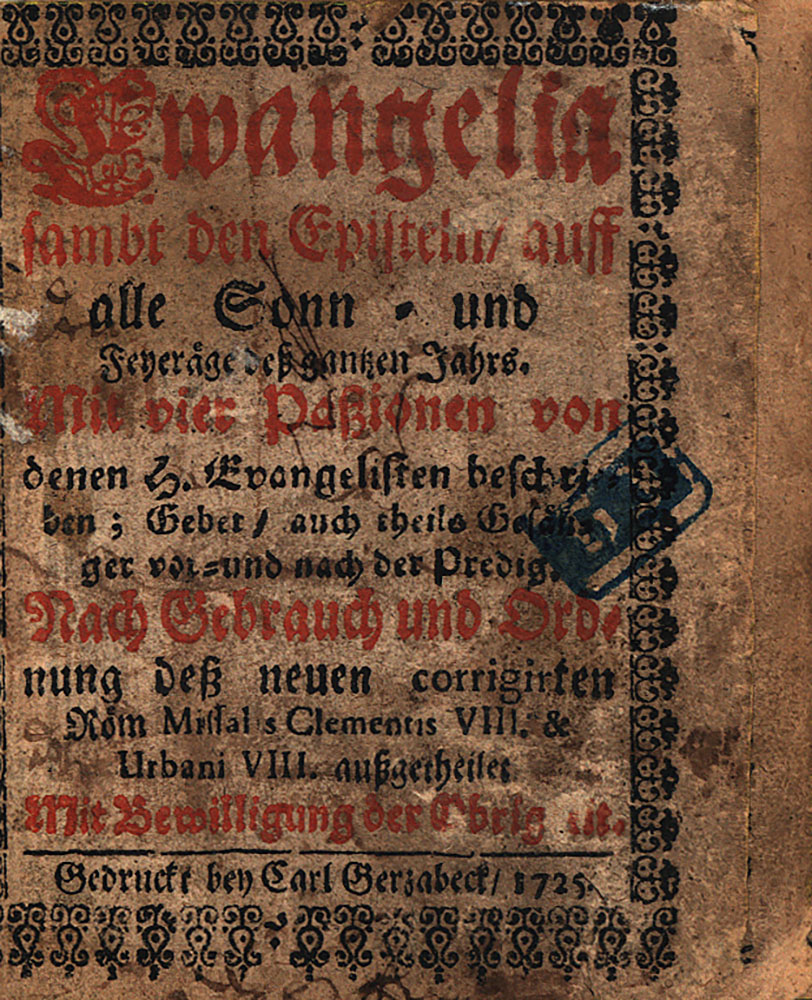 Ewangelia
sambt den Episteln/ auff
alle Sonn - und
Feyeräge deß gantzen Jahrs.
Mit vier Paßionen von
denen H. Evangelisten beschrie-
ben; Gebet/ auch theils Gesän-
ger vor-und nach der Predig.
Nach Gebrauch und Ord-
nung deß neuen corrigirten
Röm Missal s Clementis VIII. &
Urbani VIII. außgetheilet
Mit Bewilligung der Obrig it.
Gedruckt bey Carl Gerzabeck/ 1725.